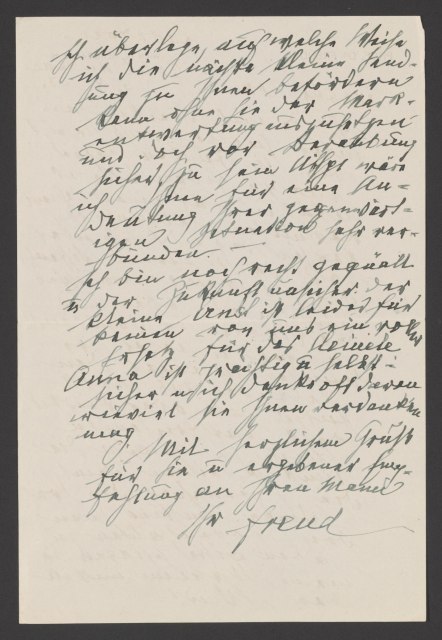 Ich überlege, auf welche Weise
ich die nächste kleine Send-
ung zu Ihnen befördern
kann ohne sie der Mark-
entwertung auszusetzen
und doch vor Beraubung
sicher zu sein. Ich wäre
Ihnen für eine An-
deutung Ihrer gegenwärt-
igen Situation sehr ver-
bunden. —
Ich bin noch recht gequält
u der Zukunft unsicher. Der
kleine Ernst ist leider für
keinen von uns ein voller
Ersatz für das Heinele
Anna ist prächtig u selbst-
sicher u ich denke oft daran
wieviel sie Ihnen verdanken
mag
Mit herzlichem Gruß
für Sie u ergebener Emp-
fehlung an Ihren Mann
Ihr Freud